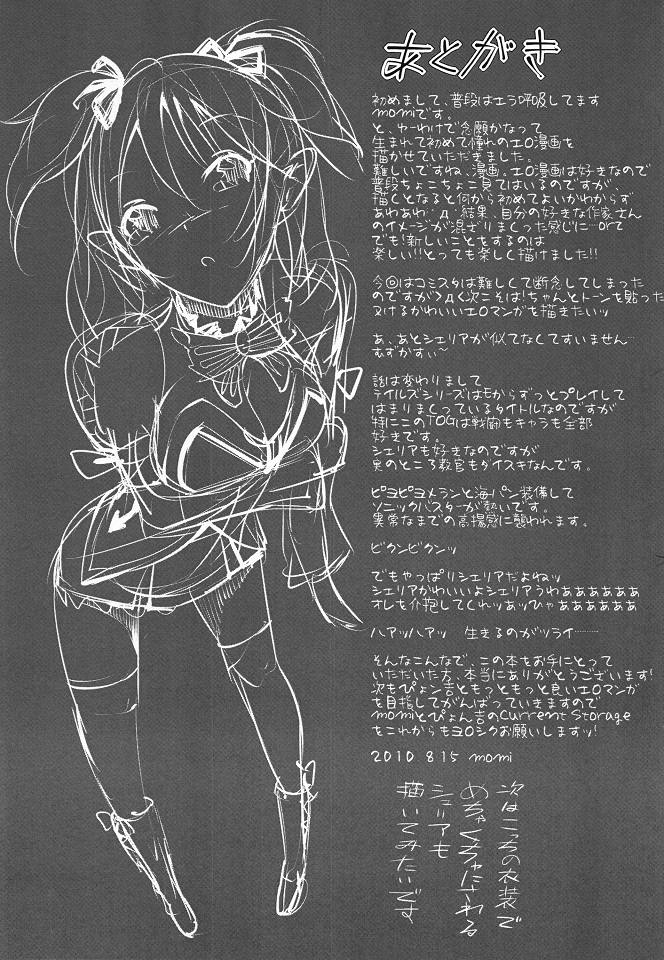 あとがき
初めまして、普段はエラ呼吸してます
momiです。
と、ゆーわけで念願かなって
生まれて初めて憧れのエロ漫画を
描かせていただきました。
難しいですね、漫画。エロ漫画は好きなので
普段ちょこちょこ見てはいるのですが、
描くとなると何から初めてよいかわからず
あわあわ…д゜結果、自分の好きな作家さん
のイメージが混ざりまくった感じに…orz
でも!新しいことをするのは
楽しい!!とっても楽しく描けました!!
今回はコミスタは難しくて断念してしまった
のですが>д<次こそは!ちゃんとトーンを貼った
ヌけるかわいいエロマンガを描きたいッ
あ、あとシェリアが似てなくてすいません…
むずかすぃ~
話は変わりまして
テイルズシリーズはEからずっとプレイして
はまりまくっているタイトルなのですが
特にこのTOGは戦闘もキャラも全部
好きです。
シェリアも好きなのですが
実のところ教官もダイスキなんです。
ピヨピヨメランと海パン装備して
ソニックバスターが熱いです。
異常なまでの高揚感に襲われます。
ビクンビクンッ
でもやっぱりシェリアだよねッ
シェリアかわいいよシェリアうわぁぁぁぁぁぁ
オレを介抱してくれッアッひゃぁぁぁぁぁぁ
ハァッハァッ 生きるのがツライ………
そんなこんなで、この本をお手にとって
いただいた方、本当にありがとうございます!
次もぴょン吉ともっともっと良いエロマンガ
を目指してがんばっていきますので
momiとぴょん吉のCurrent Storage
をこれからもヨロシクお願いしますッ!
2010 8 15 momi
次はこっちの衣装で
めちゃくちゃにされる
シェリアも
描いてみたいです